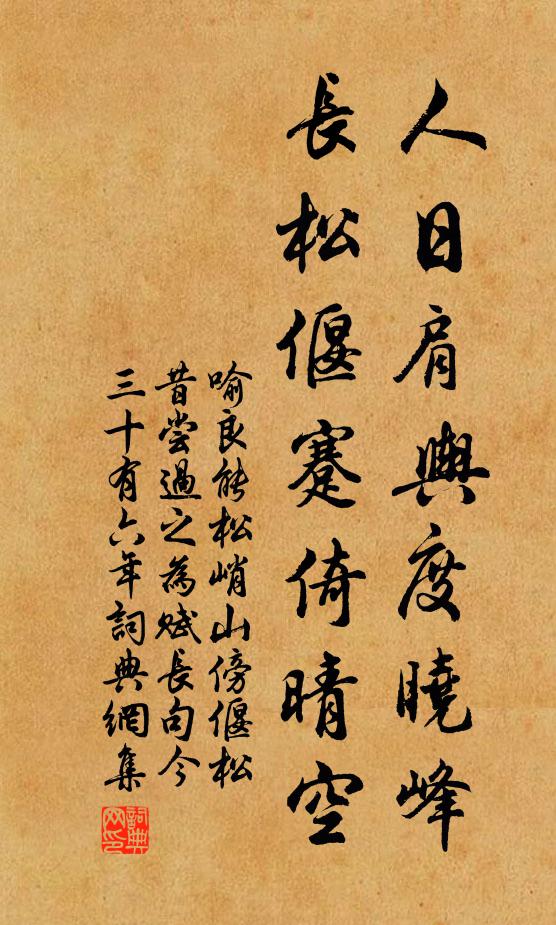 人日肩輿度曉峰
長松偃蹇倚晴空
喻良能松峭山傍偃松
昔嘗過之為賦長句今
三十有六年詞典網集
詞典
网印